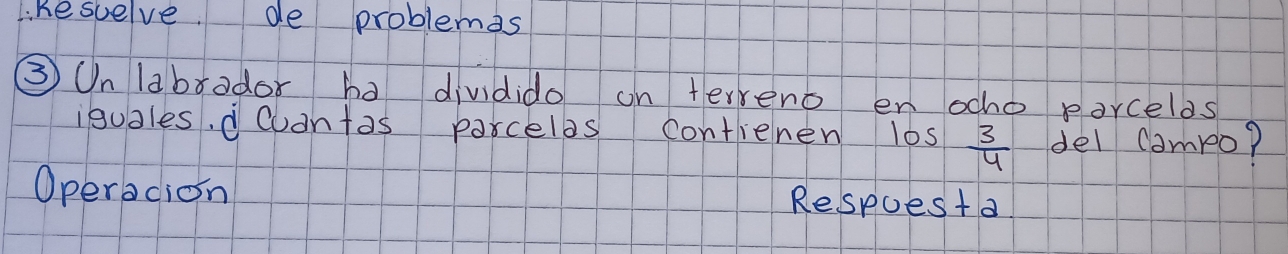 Resuelve. de problemas
③ Un labrador ha dividido un terreno en ocho parcelas
iguales. ¿ Cuantas parcelas contienen los 3/4 del Campo?
Operación Respuesta